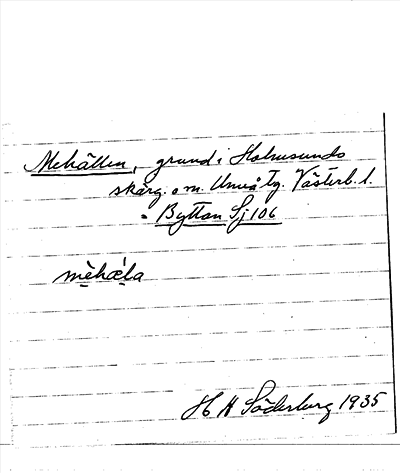 Mehällen, grund i Holmsunds
skärg. o m. Umeå tg. Västerb. l.
= Byttan Sj 106
mèhǽla
H A Söderberg 1935